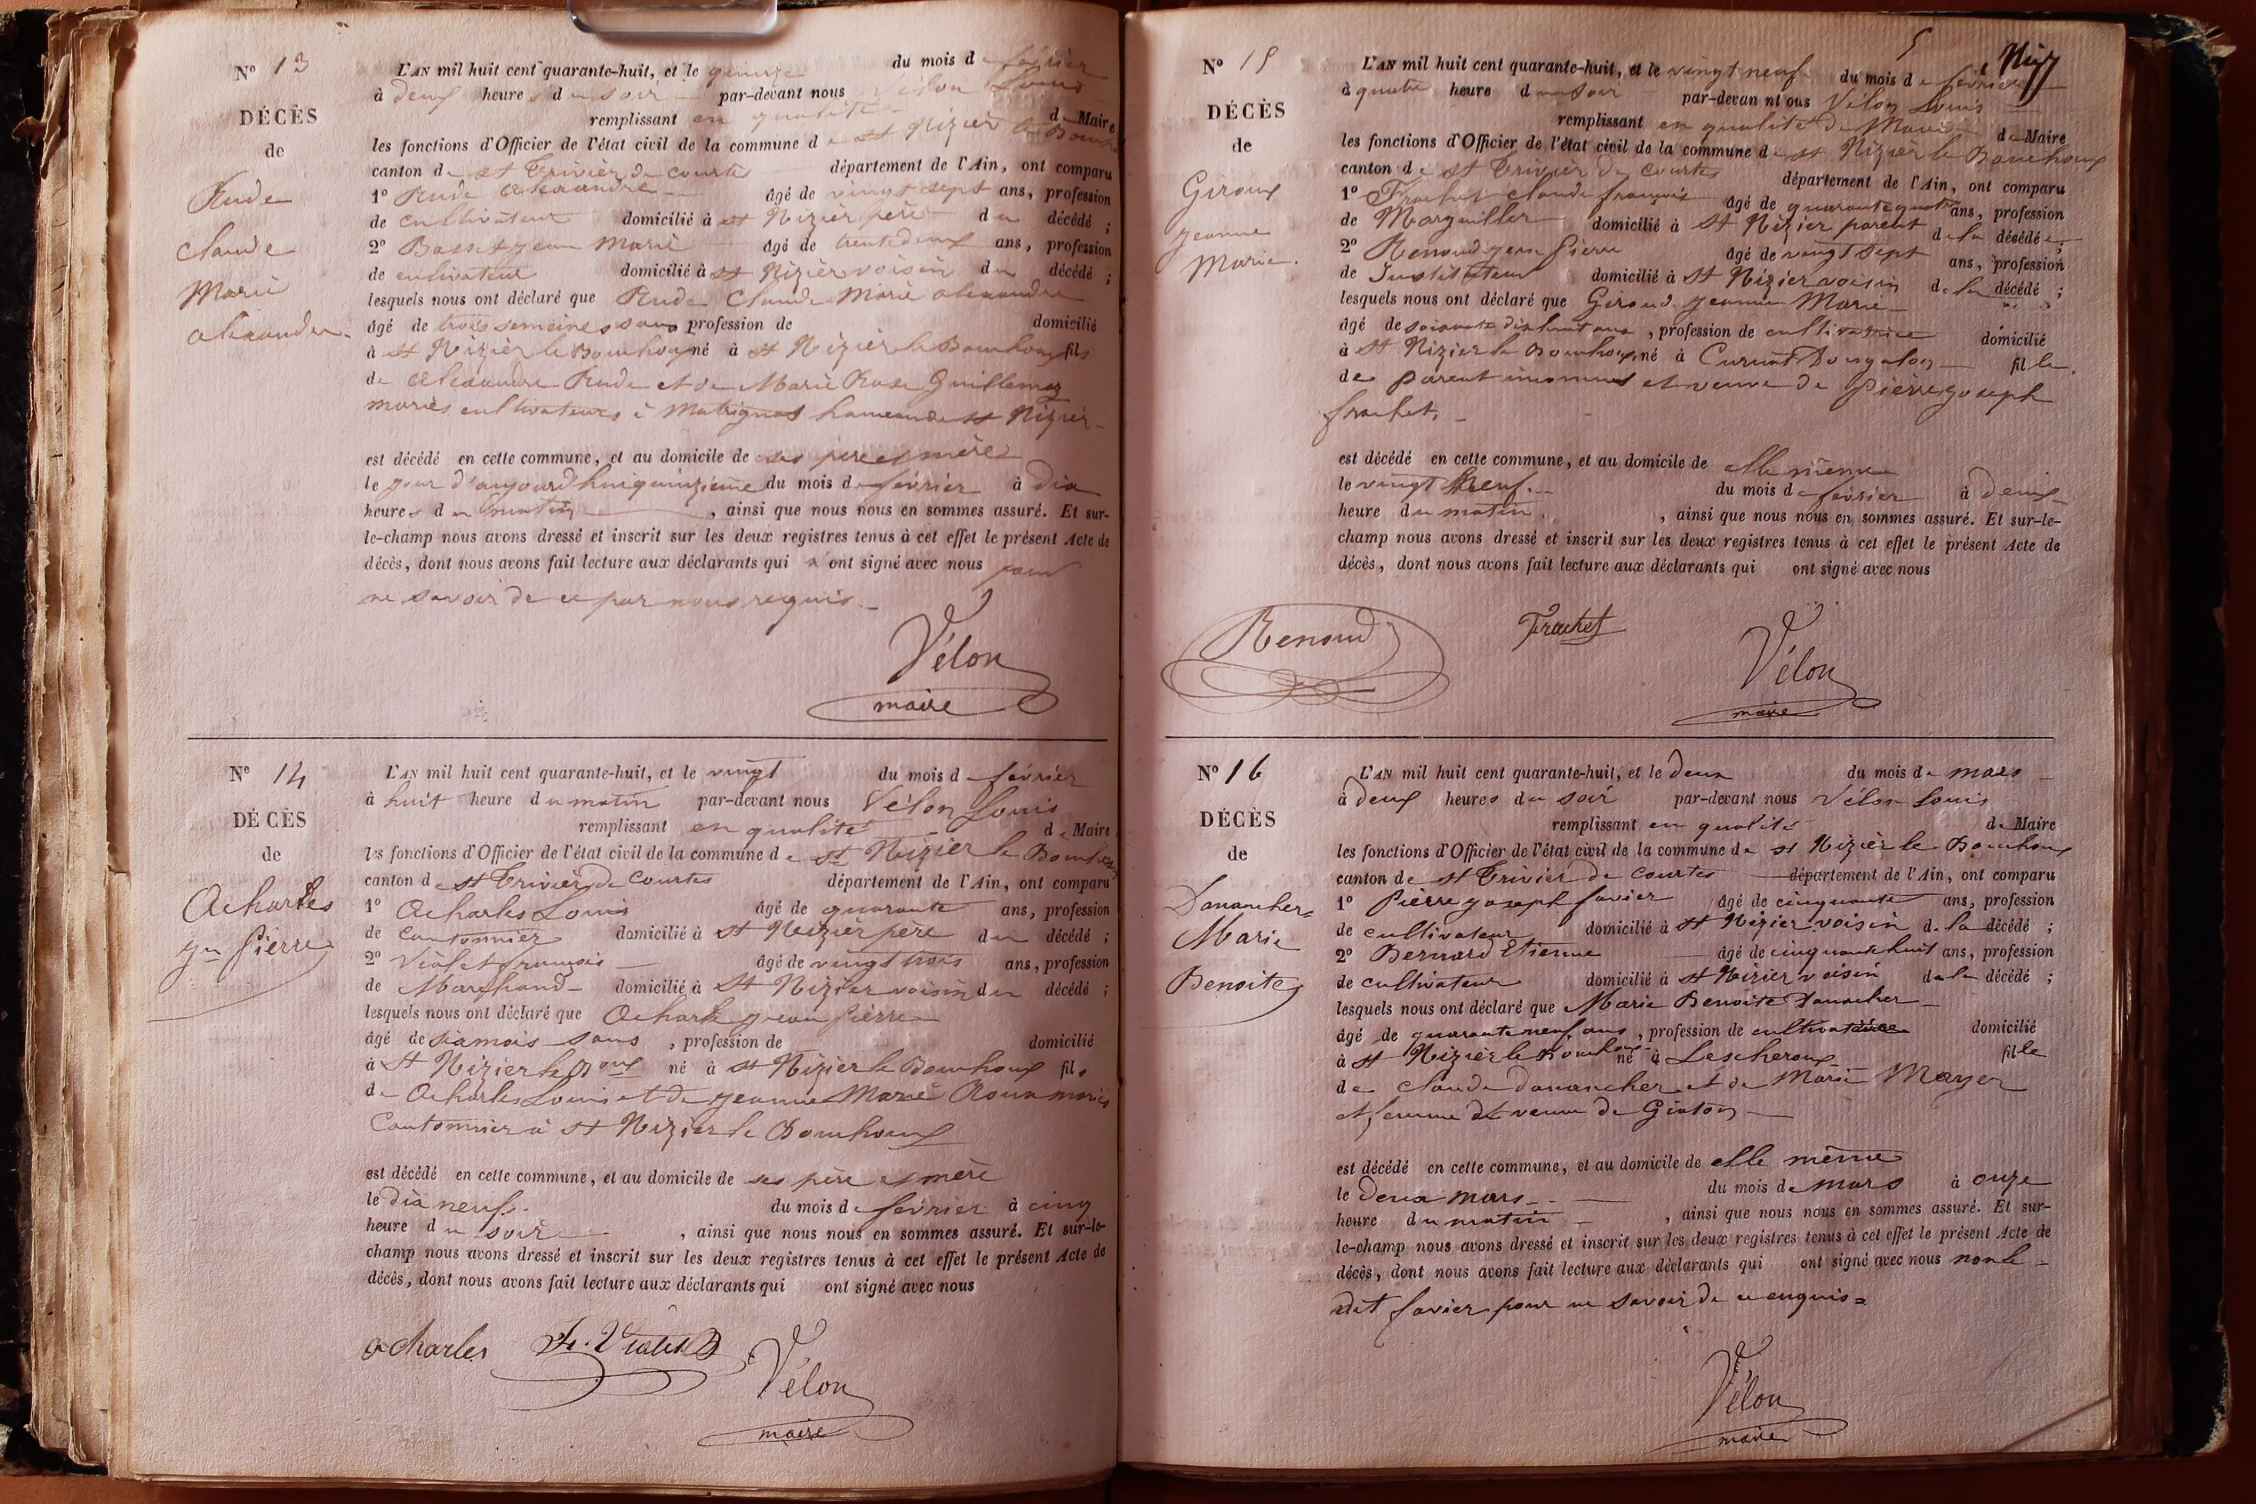 N° 13
DÉCÈS
de
Rude
Claude
Marie
alexandre
L'AN mil huit cent quarante-huit, et le quinze du mois de février
à deux heures du soir par-devant nous Vélon Louis
remplissant en qualité de Maire
les fonctions d'Officier de l'état civil de la commune de st Nizier le Bouchoux
canton de st Trivier de Courtes département de l'Ain, ont comparu
1° Rude Alexandre âgé de vingt sept ans, profession
de cultivateur domicilié à st Nizier père du décédé ;
2° Basset jean Marie âgé de trente deux ans, profession
de cultivateur domicilié à st Nizier voisin du décédé ;
lesquels nous ont déclaré que Rude Claude Marie alexandre
âgé de trois semaines sans profession de domicilié
à st Nizier le Bouchoux né à st Nizier le Bouchoux fils
de Alexandre Rude et de Marie Rose Guillemaz
mariés cultivateurs à Matrignat hameau de st Nizier
est décédé en cette commune, et au domicile de ses père et mère
le jour d'aujourd'hui quinzieme du mois de février à dix
heures du matin, ainsi que nous nous en sommes assuré. Et sur-
le-champ nous avons dressé et inscrit sur les deux registres tenus à cet effet le présent Acte de
décès, dont nous avons fait lecture aux déclarants qui n'ont signé avec nous pour
ne savoir de ce par nous requis.
Vélon
maire
N° 14
DÉCÈS
de
Acharles
jn pierre
L'AN mil huit cent quarante-huit, et le vingt du mois de février
à huit heure du matin par-devant nous Vélon Louis
remplissant en qualité de Maire
les fonctions d'Officier de l'état civil de la commune de st Nizier le Bouchoux
canton de st Trivier de Courtes département de l'Ain, ont comparu
1° Acharles Louis âgé de quarante ans, profession
de Cantonnier domicilié à st Nizier père du décédé ;
2° Violet françois âgé de vingt trois ans, profession
de Marchand domicilié à St Nizier voisin du décédé ;
lesquels nous ont déclaré que Acharles jean pierre
âgé de six mois sans, profession de domicilié
à St Nizier le Boux né à st Nizier le Bouchoux fils
de Acharles Louis et de jeanne Marie Roux mariés
Cantonnier à st Nizier le Bouchoux
est décédé en cette commune, et au domicile de ses père et mère
le dix neuf du mois de février à cinq
heure du soir, ainsi que nous nous en sommes assuré. Et sur-le-
champ nous avons dressé et inscrit sur les deux registres tenus à cet effet le présent Acte de
décès, dont nous avons fait lecture aux déclarants qui ont signé avec nous
acharles F. Violet Vélon
maire
5 Niz
N° 15
DÉCÈS
de
Giroux
jeanne
Marie.
L'AN mil huit cent quarante-huit, et le vingt neuf du mois de février
à quatre heure du soir par-devan nt ous Vélon Louis
remplissant en qualité de Maire de Maire
les fonctions d'Officier de l'état civil de la commune de st Nizier le Bouchoux
canton de st Trivier de Courtes département de l'Ain, ont comparu
1° Frachet claude françois âgé de quarante quatre ans, profession
de Marguiller domicilié à St Nizier parent de la décédée ;
2° Renoud jean Pierre âgé de vingt sept ans, profession
de Instituteur domicilié à St Nizier voisin de la décédé ;
lesquels nous ont déclaré que Giroud jeanne Marie
âgé de soixante dix huit ans, profession de cultivatrice domicilié
à St Nizier le Bouchoux né à Curciat Dongalon fille
de parent inconnus et veuve de pierre joseph
frachet.
est décédé en cette commune, et au domicile de elle même
le vingt neuf du mois de février à deux
heure du matin, ainsi que nous nous en sommes assuré. Et sur-le-
champ nous avons dressé et inscrit sur les deux registres tenus à cet effet le présent Acte de
décès, dont nous avons fait lecture aux déclarants qui ont signé avec nous
Renoud Frachet Vélon
maire
N° 16
DÉCÈS
de
Danancher
Marie
Benoite
L'AN mil huit cent quarante-huit, et le deux du mois de mars
à deux heures du soir par-devant nous Vélon Louis
remplissant en qualité de Maire
les fonctions d'Officier de l'état civil de la commune de st Nizier le Bouchoux
canton de st Trivier de Courtes département de l'Ain, ont comparu
1° Pierre joseph favier âgé de cinquante ans, profession
de cultivateur domicilié à st Nizier voisin de la décédé ;
2° Bernard Etienne âgé de cinquante huit ans, profession
de cultivateur domicilié à st Nizier voisin de la décédé ;
lesquels nous ont déclaré que Marie Benoite Danancher
âgé de quarante neuf ans, profession de cultivatrice domicilié
à st Nizier le Bouchoux né à Lescheroux fille
de claude danancher et de Marie Mayer
et femme et veuve de Giraton
est décédé en cette commune, et au domicile de elle même
le deux mars du mois de mars à onze
heure du matin, ainsi que nous nous en sommes assuré. Et sur-
le-champ nous avons dressé et inscrit sur les deux registres tenus à cet effet le présent Acte de
décès, dont nous avons fait lecture aux déclarants qui ont signé avec nous non le
dit favier pour ne savoir de ce enquis
Vélon
maire